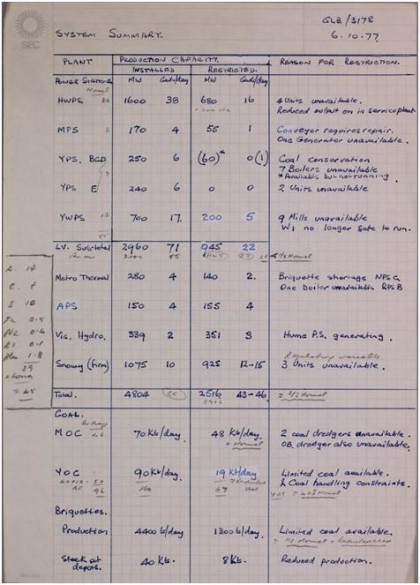 SEC
GLB/3178
SYSTEM SUMMARY.
6-10-77.
PLANT
PRODUCTION CAPACITY.
REASON FOR RESTRICTION.
INSTALLED
RESTRICTED.
POWER STATIONS
MW
Gwh/day
MW
Gwh/day
HWPS
1600
38
680
16
4 Units unavailable.
Reduced output on in service plant
MPS
170
4
55
1
Conveyor requires repair.
One Generator unavailable.
YPS, BCD
250
6
(60)*
0 (1)
Coal conservation
7 Boilers unavailable
* Available but not running
YPS E
240
6
0
0
2 Units unavailable
YWPS
700
17.
200
5
9 Mills unavailable
W1 no longer safe to run.
LV. Subtotal
2960
71
945
22
Metro Thermal
280
4
140
2.
Briquette shortage NPSC
One boiler unavailable RPSB
APS
150
4
155
4
Vis. Hydro.
339
2
351
3
Hume P.S. generating.
Snowy (firm)
1075
10
925
12-15
3 Units unavailable.
Total.
4804
2516
43-46
COAL.
MOC
70 Kt/day.
48 Kt/day.
2 coal dredgers unavailable.
OB. dredger also unavailable.
YOC
90 Kt/day.
19 Kt/day
Limited coal available.
& Coal handling constraints.
Briquettes.
Production
4400 t/day
1300 t/day.
Limited coal available.
Stock at
depots.
40 Kt.
8 Kt.
Reduced production.